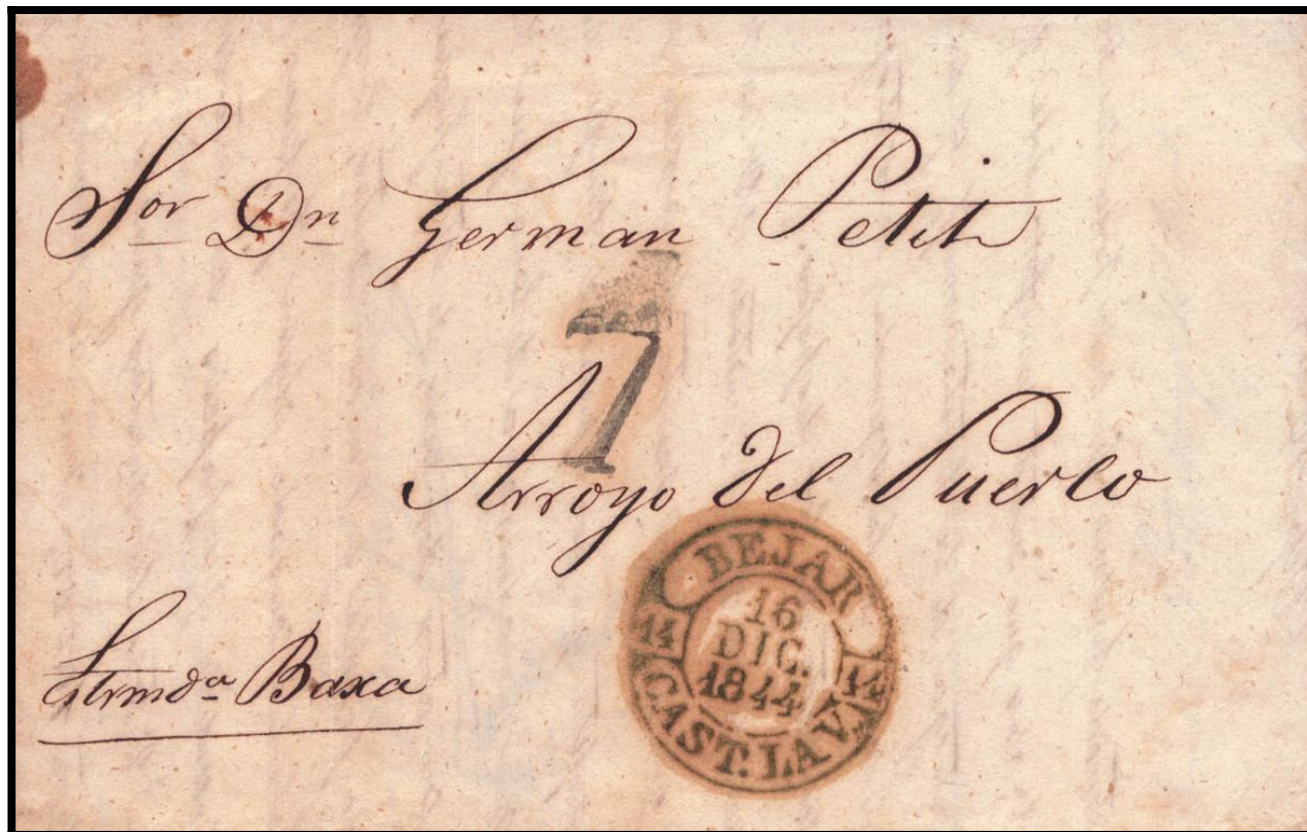 Sor Dn German Petit
7
Arroyo del Puerto
BEJAR
16
DIC.
1844
14 14
CAST. LA V.
Estrmda Baxa